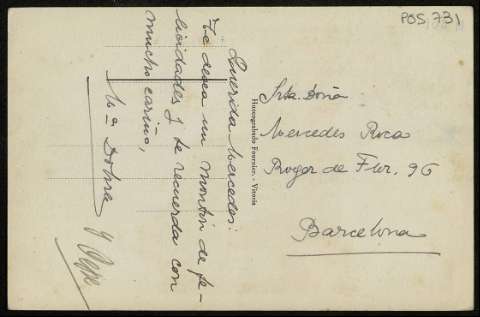 POS 731
Querida Mercedes:
Te desea un montón de fe-
licidades y te recuerda con
mucho cariño,
Mª Dolores
y Pepe
Huecograbado Fournier. - Vitoria
Srta. Doña
Mercedes Roca
Roger de Flor, 96
Barcelona